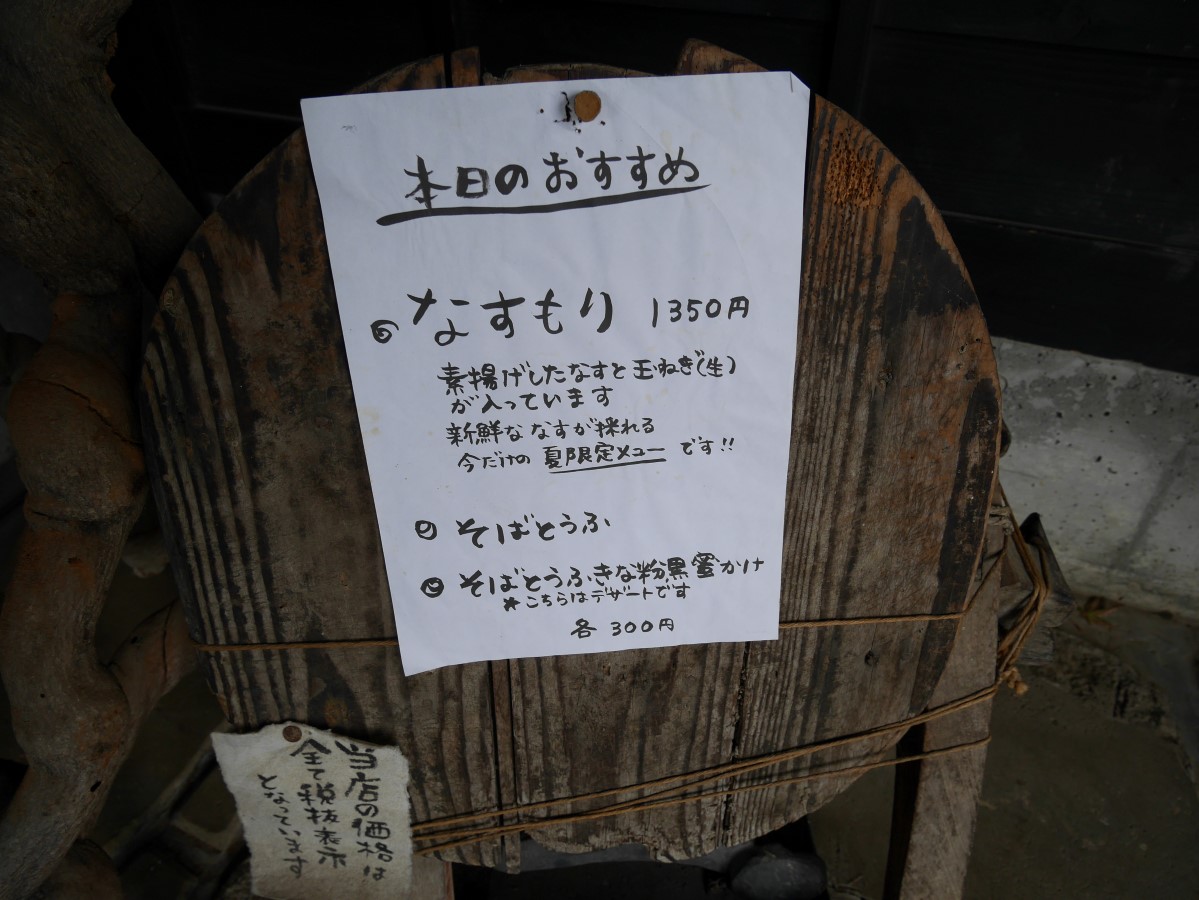 本日のおすすめ
なすもり 1350円
素揚げしたなすと玉ねぎ(生)
が入っています
新鮮ななすが採れる
今だけの 夏限定メニュー です!!
そばとうふ
そばとうふきな粉黒蜜かけ
*こちらはデザートです
各 300円
当店の価格は
全て税抜表示
となっています